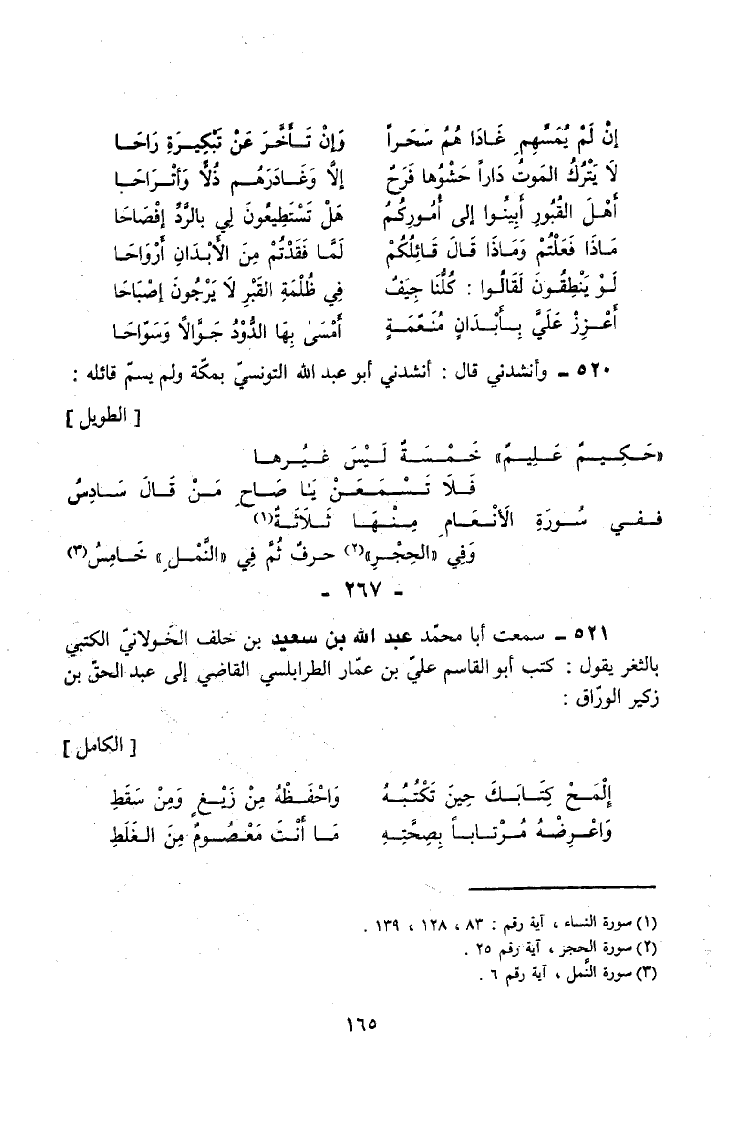 إِنْ لَمْ يُمَسِّهِمِ غَادَا هُمُ سَحَراً وَإِنْ تَـأَخَّرَ عَنْ تَبْكِيـرَةٍ رَاحَـا
لَا يَتْرُكُ المَوتُ دَاراً حَشْوُها فَرَحٌ إِلَّا وَغَـادَرَهُـم ذُلًّا وَأَتْـرَاحَـا
أَهْـلَ القُبُورِ أَبِينُوا إلى أُمُورِكُمُ هَلْ تَسْتَطِيعُونَ لِي بالرَّدُّ إفْصَاحَا
مَـاذَا فَعَلْتُمْ وَمَاذَا قَالَ قَائِلُكُمْ لَمَّا فَقَدْتُمْ مِنَ الأَبْدَانِ أَرْوَاحَـا
لَـوْ يَنْطِقُـونَ لَقَالُوا : كُلُّنَا جِيَفٌ فِي ظُلْمَةِ القَبْرِ لَا يَرْجُونَ إصْبَاحَا
أَعْـزِزْ عَلَيَّ بِـأَبْـدَانٍ مُنَعَّمَـةٍ أَمْسَىٰ بِهَا الدُّوْدُ جَوَّالًا وَسَوَّاحَـا
٥٢٠ ـ وأنشدني قال : أنشدني أبو عبد الله التونسيّ بمكّة ولم يسمّ قائله :
[ الطويل ]
«حَـكِـيـمٌ عَـلِيـمٌ» خَـمْـسَـةٌ لَـيْسَ غـيْـرهـا
فَـلَا تَـسْـمَـعَـنْ يَـا صَـاحِ مَـنْ قَـالَ سَـادِسُ
فـفـي سُـورَةِ الأَنْـعَـامِ مِـنْـهَـا ثَـلَاثَـةٌ(١)
وَفِي «الحِجْـرِ»(٢) حرفٌ ثُمَّ فِي «النَّمْـلِ» خَـامِسُ(٣)
- ٢٦٧ -
٥٢١ ـ سمعت أبا محمّد عبد الله بن سعيد بن خلف الخَولانيّ الكتبي
بالثغر يقول : كتب أبو القاسم عليّ بن عمّار الطرابلسي القاضي إلى عبد الحقّ بن
زكير الورّاق :
[ الكامل ]
إِلْمَـحْ كِتَـابَـكَ حِينَ تَكْتُبُـهُ وَاحْفَظْهُ مِنْ زَيْـغٍ وَمِنْ سَقَطِ
وَاعْـرِضْـهُ مُـرْتـابـاً بِصِحَّتِـهِ مَـا أَنْتَ مَعْصُـومٌ مِنَ الغَلَطِ
(١) سورة النساء ، آية رقم : ٨٣ ، ١٢٨ ، ١٣٩ .
(٢) سورة الحجر ، آية رقم ٢٥ .
(٣) سورة النَّمل ، آية رقم ٦ .
١٦٥